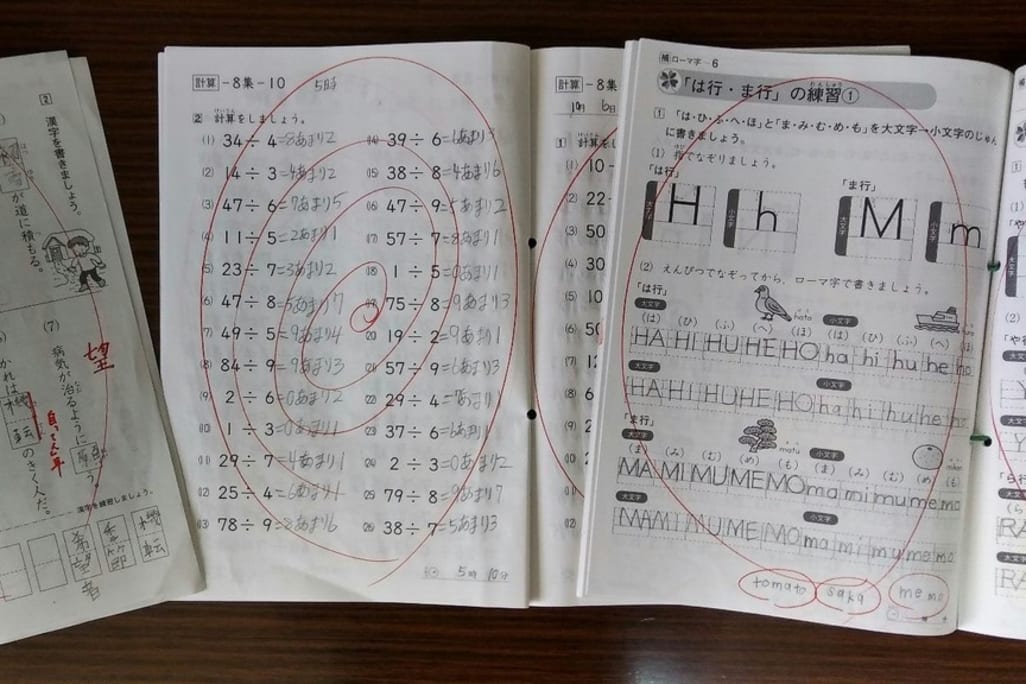 2
漢字を書きましょう。
が道に積もる。
(7)
病気が治るように願う
望
かれは機転のきく人だ。
漢字を練習しましょう。
機転
希望者
計算 -8集-10
5時
2 計算をしましょう。
(1) 34 ÷ 4 =8あまり2
(2) 14 ÷ 3 =4あまり2
(3) 47 ÷ 6 =7あまり5
(4) 11 ÷ 5 =2あまり1
(5) 23 ÷ 7 =3あまり2
(6) 47 ÷ 8 =5あまり7
(7) 49 ÷ 5 =9あまり4
(8) 84 ÷ 9 =9あまり3
(9) 2 ÷ 6 =0あまり2
(10) 1 ÷ 3 =0あまり1
(11) 29 ÷ 7 =4あまり1
(12) 25 ÷ 4 =6あまり1
(13) 78 ÷ 9 =8あまり6
(14) 39 ÷ 6 =6あまり3
(15) 38 ÷ 8 =4あまり6
(16) 47 ÷ 9 =5あまり2
(17) 57 ÷ 7 =8あまり1
(18) 1 ÷ 5 =0あまり1
(19) 75 ÷ 8 =9あまり3
(20) 19 ÷ 2 =9あまり1
(21) 57 ÷ 9 =6あまり3
(22) 29 ÷ 4 =7あまり1
(23) 37 ÷ 6 =6あまり1
(24) 2 ÷ 3 =0あまり2
(25) 79 ÷ 8 =9あまり7
(26) 38 ÷ 7 =5あまり3
5時 10分
計算 -8集
10月 6日
1 計算を
(1) 10
(2) 22
(3) 50
(4) 30
(5) 10
(6) 50
(7) 12
(8) 6
(9) 2
(10)
(11)
(12)
補 ローマ字-6
「は行・ま行」の練習①
1 「は・ひ・ふ・へ・ほ」と「ま・み・む・め・も」を大文字→小文字のじゅん
に書きましょう。
(1) 指でなぞりましょう。
「は行」 「ま行」
大文字 H 小文字 h 大文字 M 小文字 m
(2) えんぴつでなぞってから、ローマ字で書きましょう。
「は行」
hato
大文字 小文字
(は) (ひ) (ふ) (へ) (ほ) (は) (ひ) (ふ) (へ) (ほ)
HA HI HU HE HO ha hi hu he ho
大文字 小文字
HA HI HU HE HO ha hi hu he ho
「ま行」
matu
mikan
大文字 小文字
(ま) (み) (む) (め) (も) (ま) (み) (む) (め) (も)
MA MI MU ME MO ma mi mu me mo
大文字 小文字
MA MI MU ME MO ma mi mu me mo
tomato saka memo